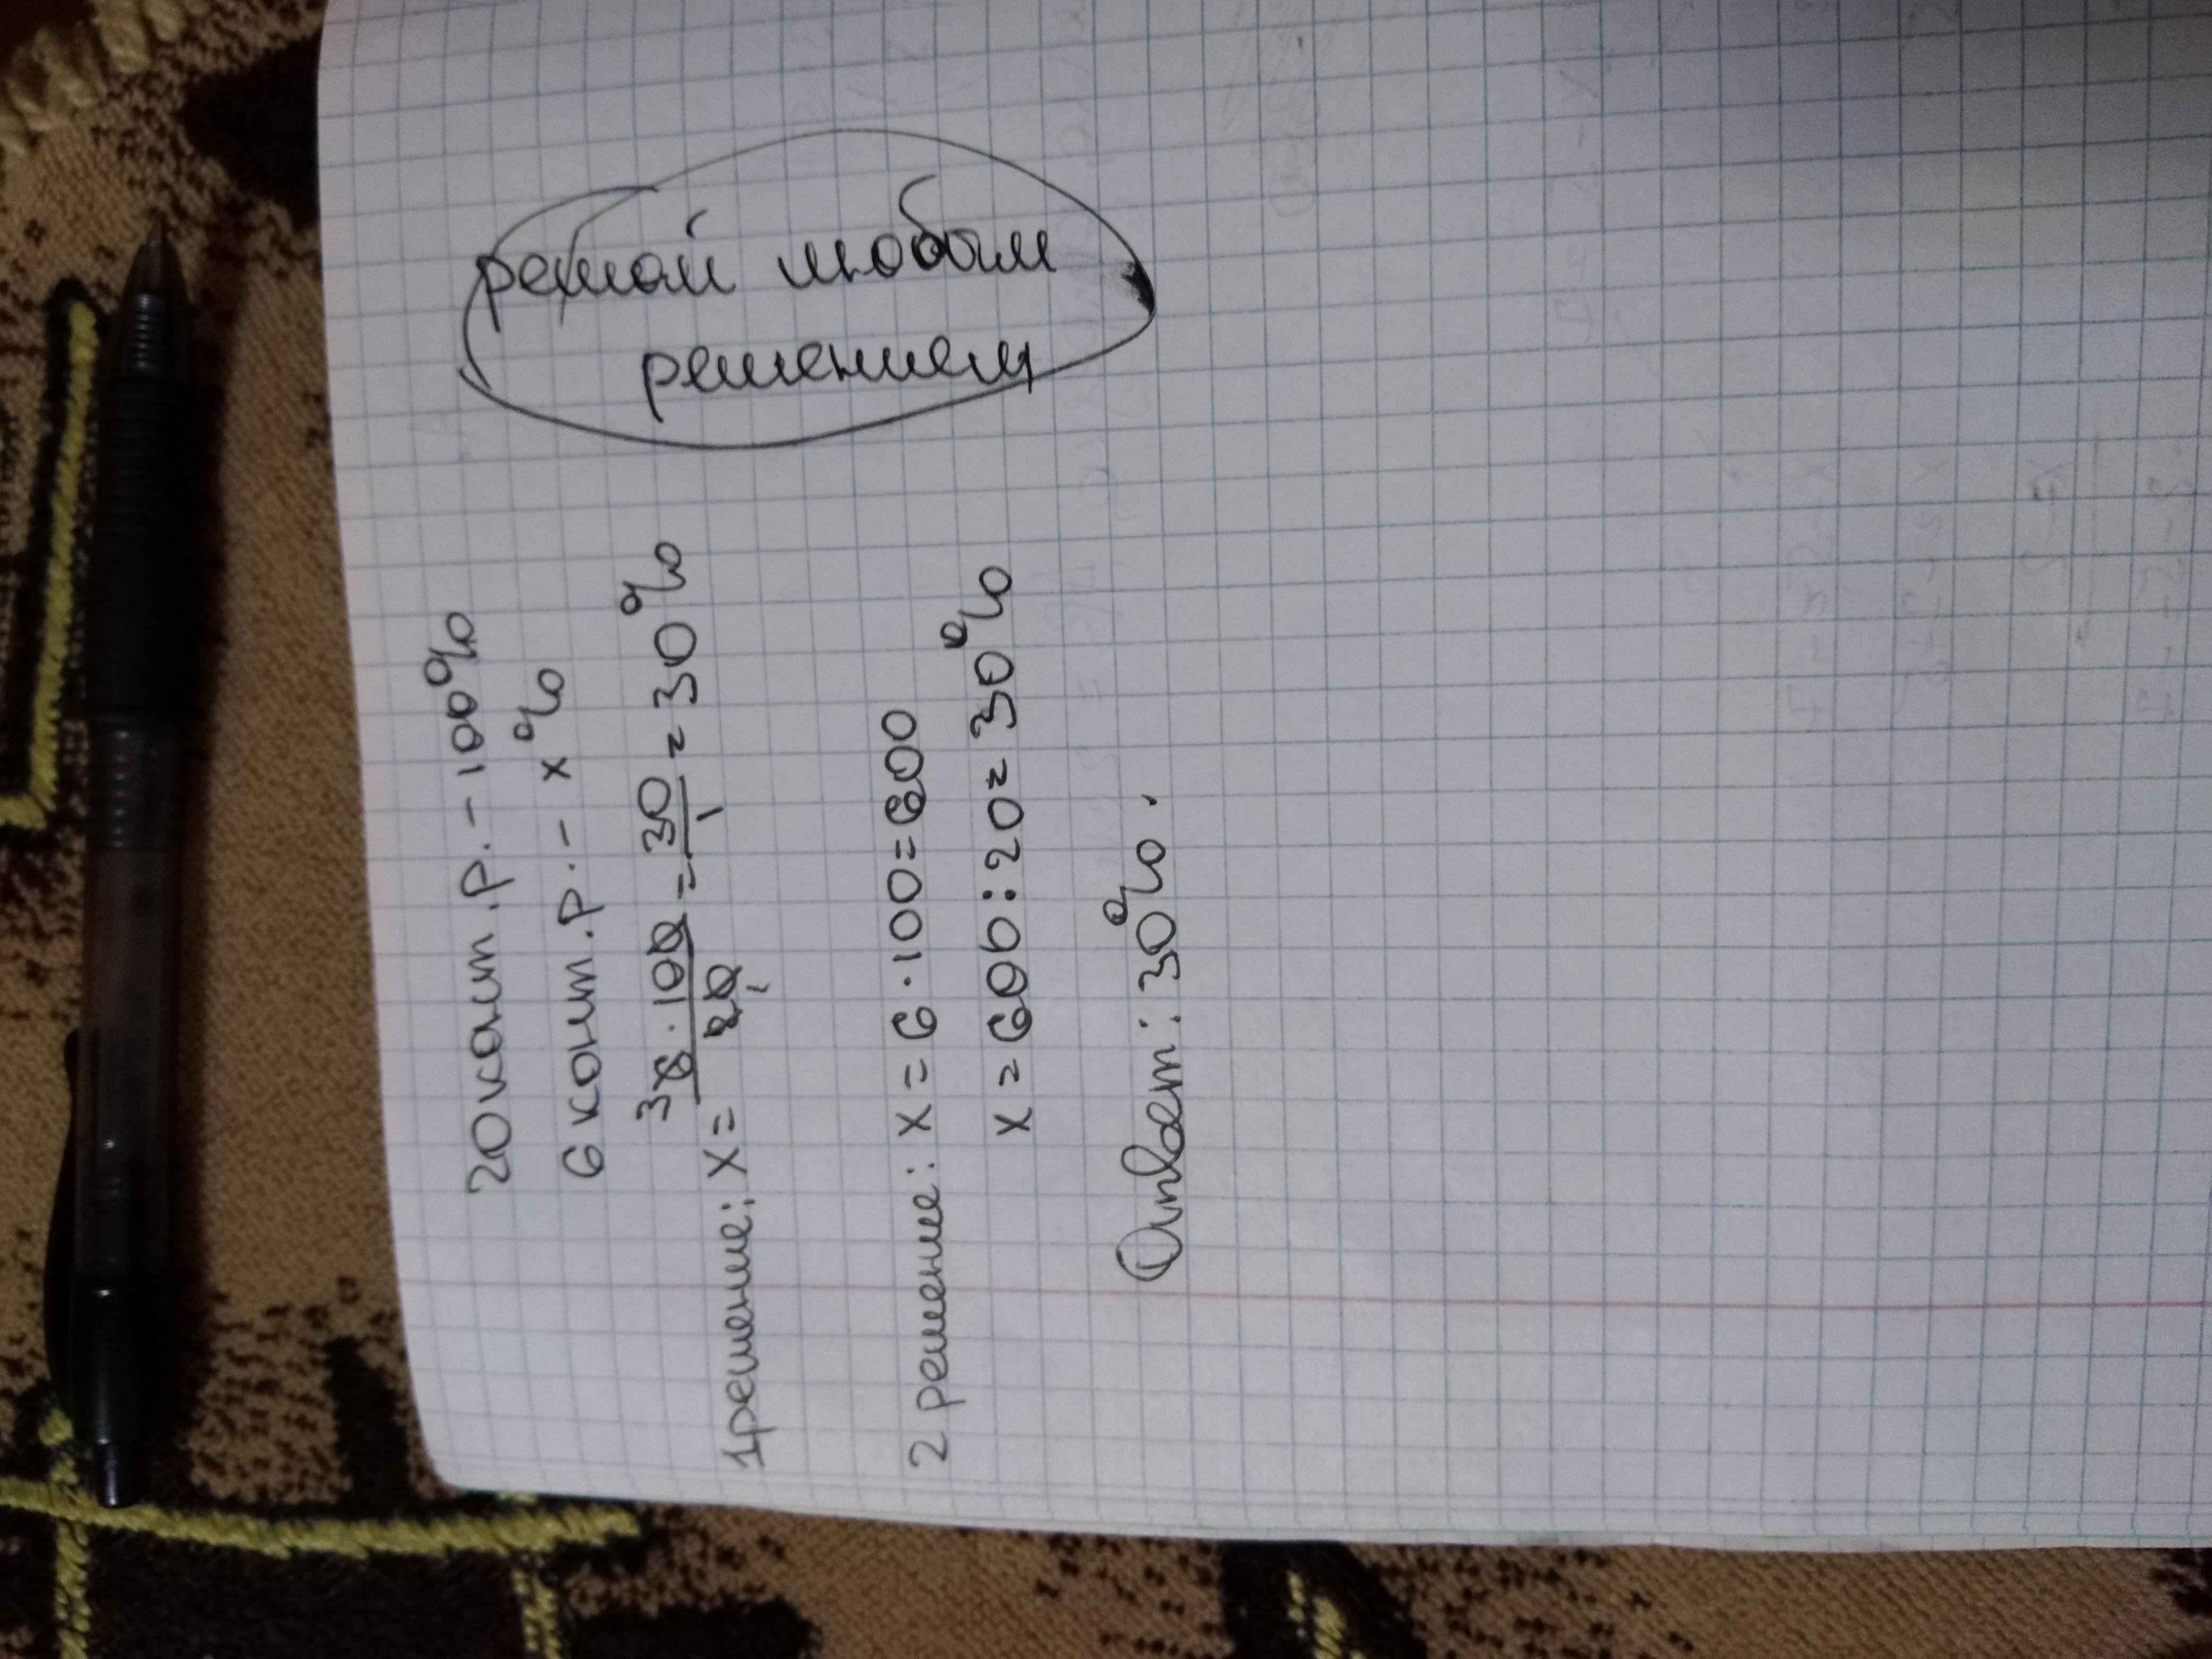 20 конт.р. - 100%
6 конт.р. - x%
1 решение: x = 6 · 100 / 20 = 30 / 1 = 30%
2 решение: x = 6 · 100 = 600
x = 600 : 20 = 30%
Ответ: 30%.
решай любым
решением